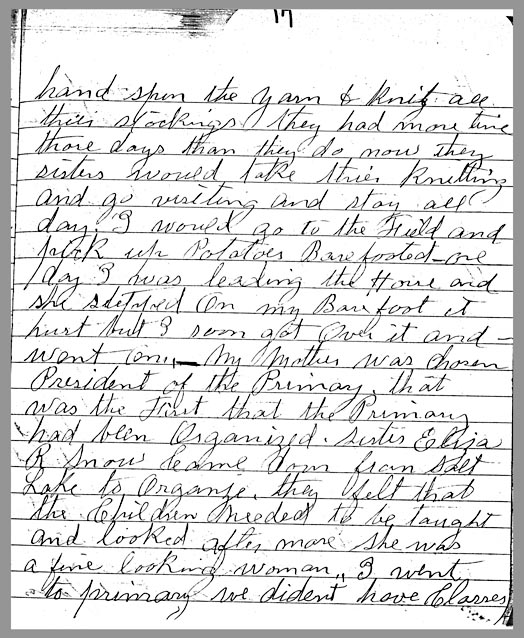 17
hand spun the yarn & knit all
thier stockings they had more time
those days than they do now they
sisters would take thier knitting
and go visiting and stay all
day. I would go to the Field and
pick up Potatoes Barefooted - one
day I was leading the Horse and
she stepped On my Bare foot it
hurt but I soon got Over it and -
went on. - My Mother was chosen
President of the Primary. that
was the First that the Primary
had been Organized. Sister Eliza
R Snow Came down from Salt
Lake to Organize. they felt that
the Children needed to be taught
and looked after more she was
a fine looking woman,, I went
to primary we dident have Classes